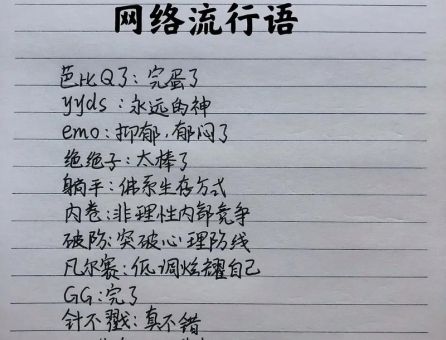 网络流行语
芭比Q了：完蛋了
yyds：永远的神
emo：抑郁，郁闷了
绝绝子：太棒了
躺手：佛系生存方式
内卷：非理性内部竞争
破防：突破心理防线
凡尔赛：低调炫耀自己
GG：完了
针不戳：真不错